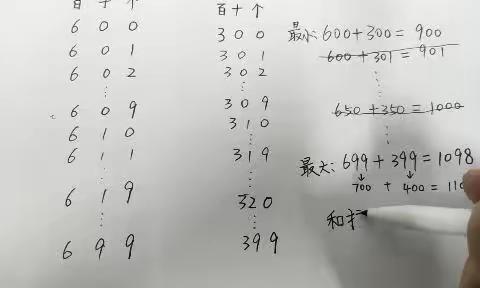 百 十 个
6 0 0
6 0 1
6 0 2
⋮
6 0 9
6 1 0
6 1 1
⋮
6 1 9
⋮
6 9 9
百 十 个
3 0 0
3 0 1
3 0 2
⋮
3 0 9
3 1 0
⋮
3 1 9
⋮
3 2 0
⋮
3 9 9
最小: 600+300=900
600+301=901
⋮
650+350=1000
⋮
最大: 699+399=1098
↓ ↓
700 + 400 = 110
和